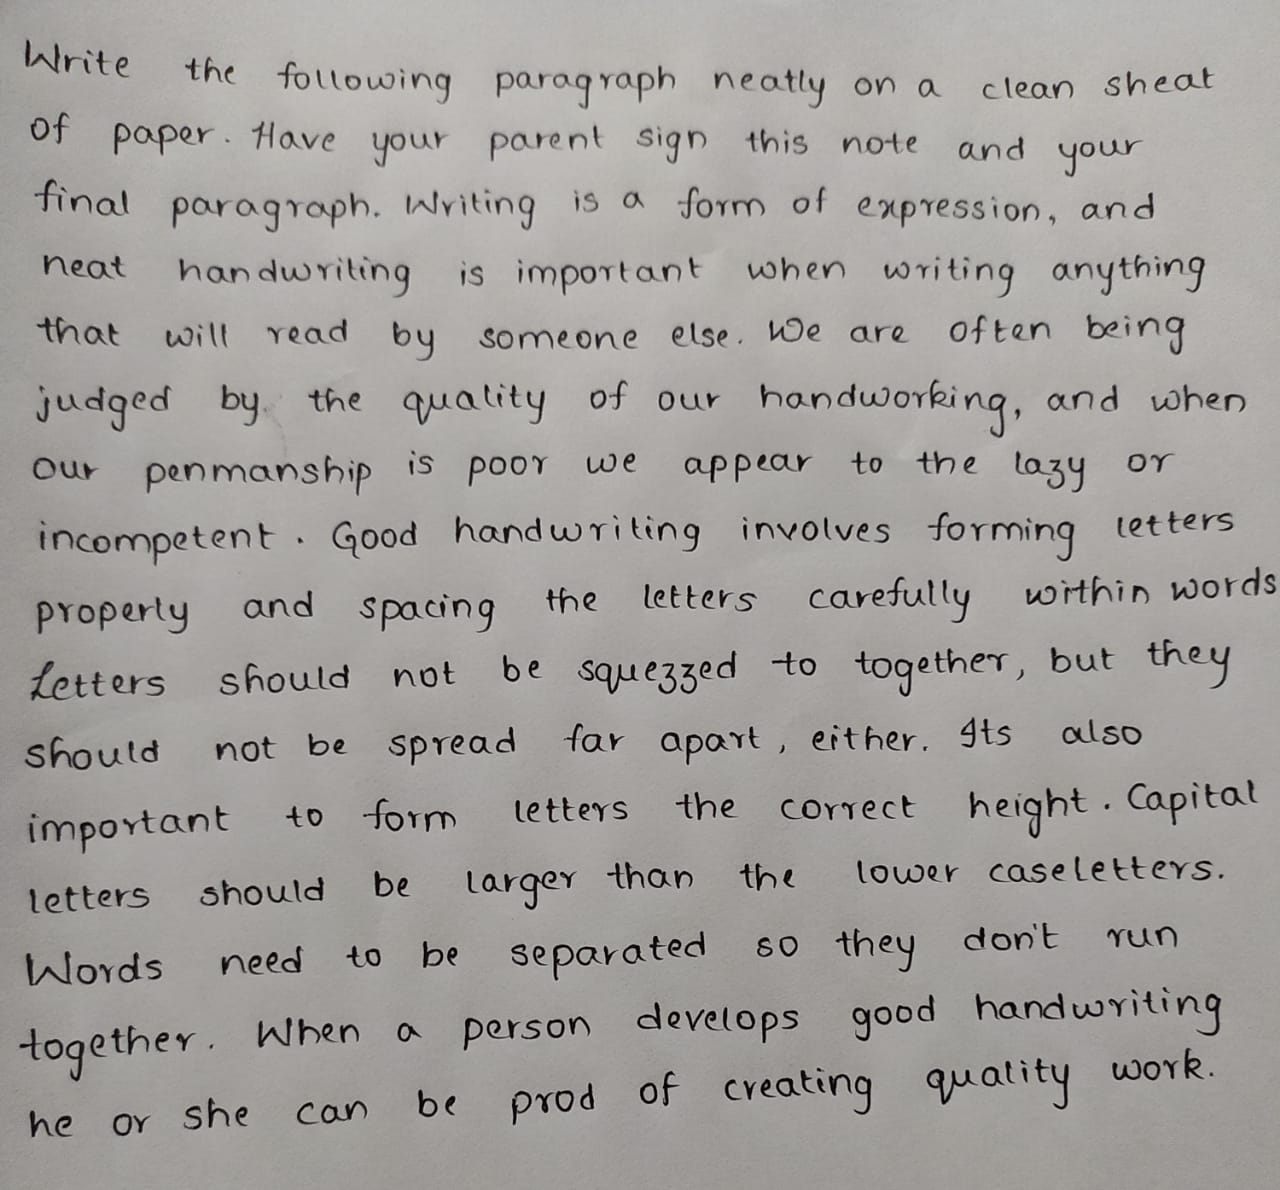 Write the following paragraph neatly on a clean sheat
of paper. Have your parent sign this note and your
final paragraph. Writing is a form of expression, and
neat handwriting is important when writing anything
that will read by someone else. We are often being
judged by the quality of our handworking, and when
our penmanship is poor we appear to the lazy or
incompetent. Good handwriting involves forming letters
properly and spacing the letters carefully within words
Letters should not be squezzed to together, but they
should not be spread far apart, either. Its also
important to form letters the correct height. Capital
letters should be larger than the lower caseletters.
Words need to be separated so they don't run
together. When a person develops good handwriting
he or she can be prod of creating quality work.